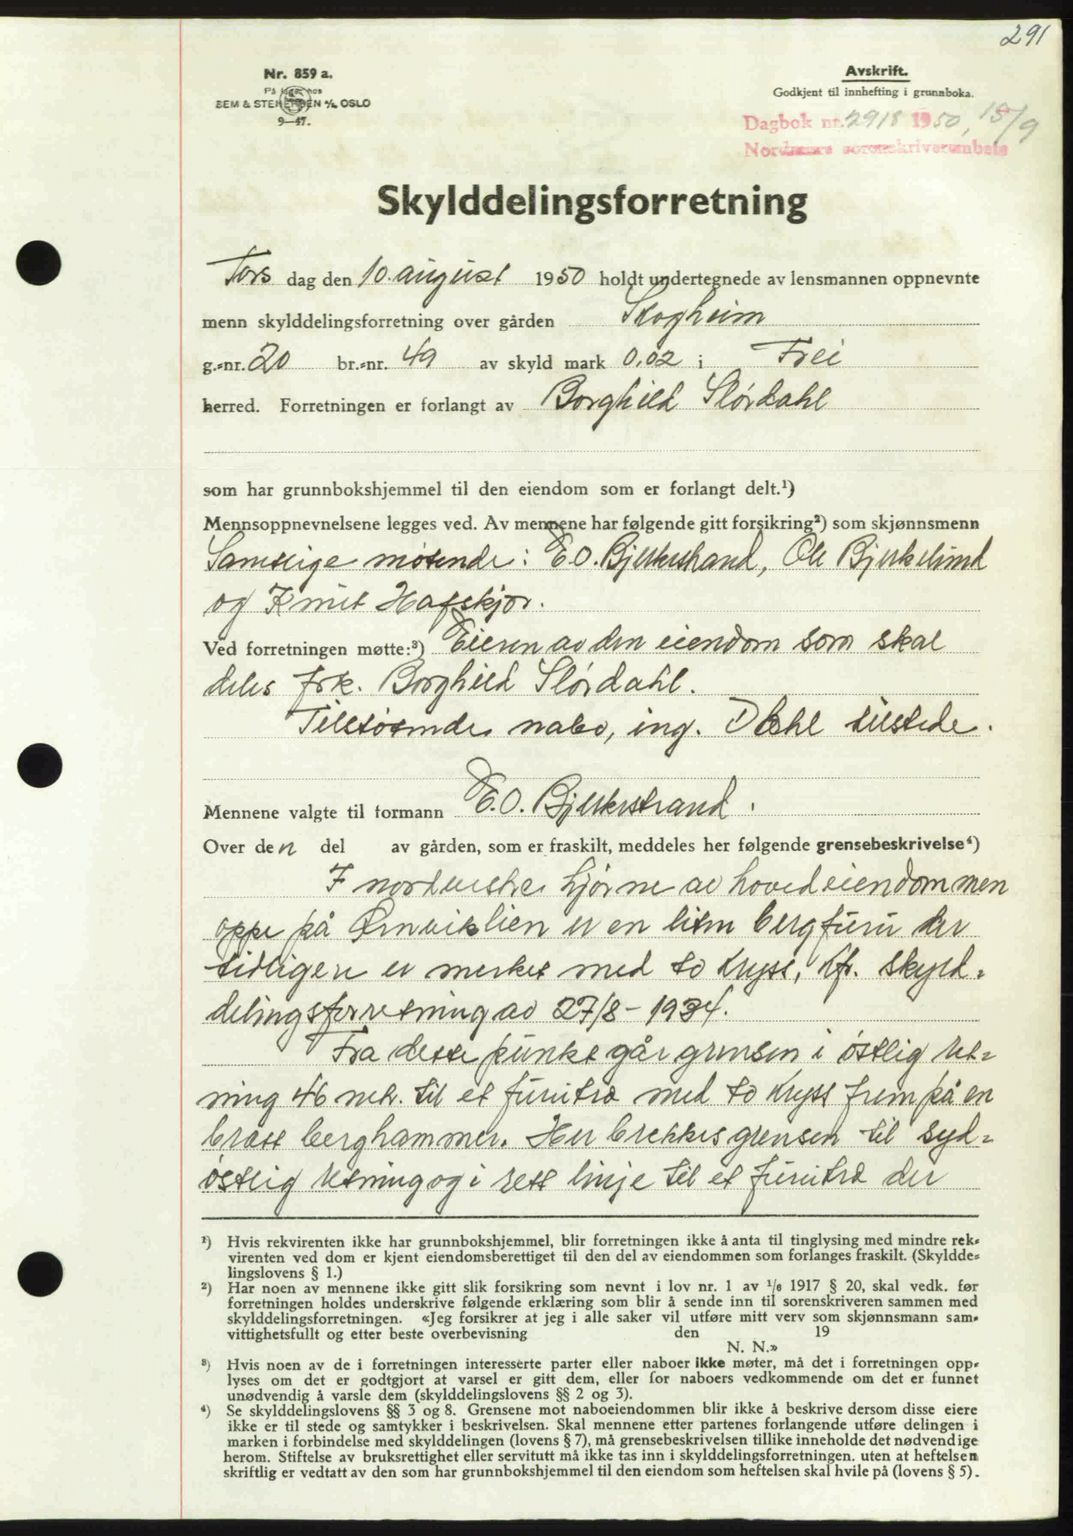 291
Nr. 859 a.
På lager hos
SEM & STENERSEN A/S, OSLO
9—47.
Avskrift.
Godkjent til innhefting i grunnboka.
Dagbok nr. 2918 1950, 15/9
Nordmøre sorenskriverembete
Skylddelingsforretning
Tors dag den 10. august 1950 holdt undertegnede av lensmannen oppnevnte
menn skylddelingsforretning over gården Skogheim
g.-nr. 20 br.-nr. 49 av skyld mark 0,02 i Frei
herred. Forretningen er forlangt av Borghild Slørdahl
som har grunnbokshjemmel til den eiendom som er forlangt delt.¹)
Mennsoppnevnelsene legges ved. Av mennene har følgende gitt forsikring²) som skjønnsmenn
Samtlige møtende: E.O. Bjerkestrand, Ole Bjerkelund
og Knut Hafskjær.
Ved forretningen møtte:³) Eieren av den eiendom som skal
deles frk. Borghild Slørdahl.
Tilstøtende nabo, ing. Dahl tilstede.
Mennene valgte til formann E.O. Bjerkestrand.
Over den del av gården, som er fraskilt, meddeles her følgende grensebeskrivelse⁴)
I nordvestre hjørne av hovedeiendommen
oppe på Ørnviklien er en liten bergfuru der
tidligere er merket med to kryss, kfr. skyld-
delingsforretning av 27/8 - 1934.
Fra dette punkt går grensen i østlig ret-
ning 46 mtr. til et furutre med to kryss frem på en
bratt berghammer. Her brekkes grensen til syd-
østlig retning og i rett linje til et furutre der
¹) Hvis rekvirenten ikke har grunnbokshjemmel, blir forretningen ikke å anta til tinglysing med mindre rek-
virenten ved dom er kjent eiendomsberettiget til den del av eiendommen som forlanges fraskilt. (Skyldde-
lingslovens § 1.)
²) Har noen av mennene ikke gitt slik forsikring som nevnt i lov nr. 1 av 1/6 1917 § 20, skal vedk. før
forretningen holdes underskrive følgende erklæring som blir å sende inn til sorenskriveren sammen med
skylddelingsforretningen. «Jeg forsikrer at jeg i alle saker vil utføre mitt verv som skjønnsmann sam-
vittighetsfullt og etter beste overbevisning den 19
N. N.»
³) Hvis noen av de i forretningen interesserte parter eller naboer ikke møter, må det i forretningen opp-
lyses om det er godtgjort at varsel er gitt dem, eller for naboers vedkommende om det er funnet
unødvendig å varsle dem (skylddelingslovens §§ 2 og 3).
⁴) Se skylddelingslovens §§ 3 og 8. Grensene mot naboeiendommen blir ikke å beskrive dersom disse eiere
ikke er til stede og samtykker i beskrivelsen. Skal mennene etter partenes forlangende utføre delingen i
marken i forbindelse med skylddelingen (lovens § 7), må grensebeskrivelsen tillike inneholde det nødvendige
herom. Stiftelse av bruksrettighet eller servitutt må ikke tas inn i skylddelingsforretningen. uten at heftelsen
skriftlig er vedtatt av den som har grunnbokshjemmel til den eiendom som heftelsen skal hvile på (lovens § 5).